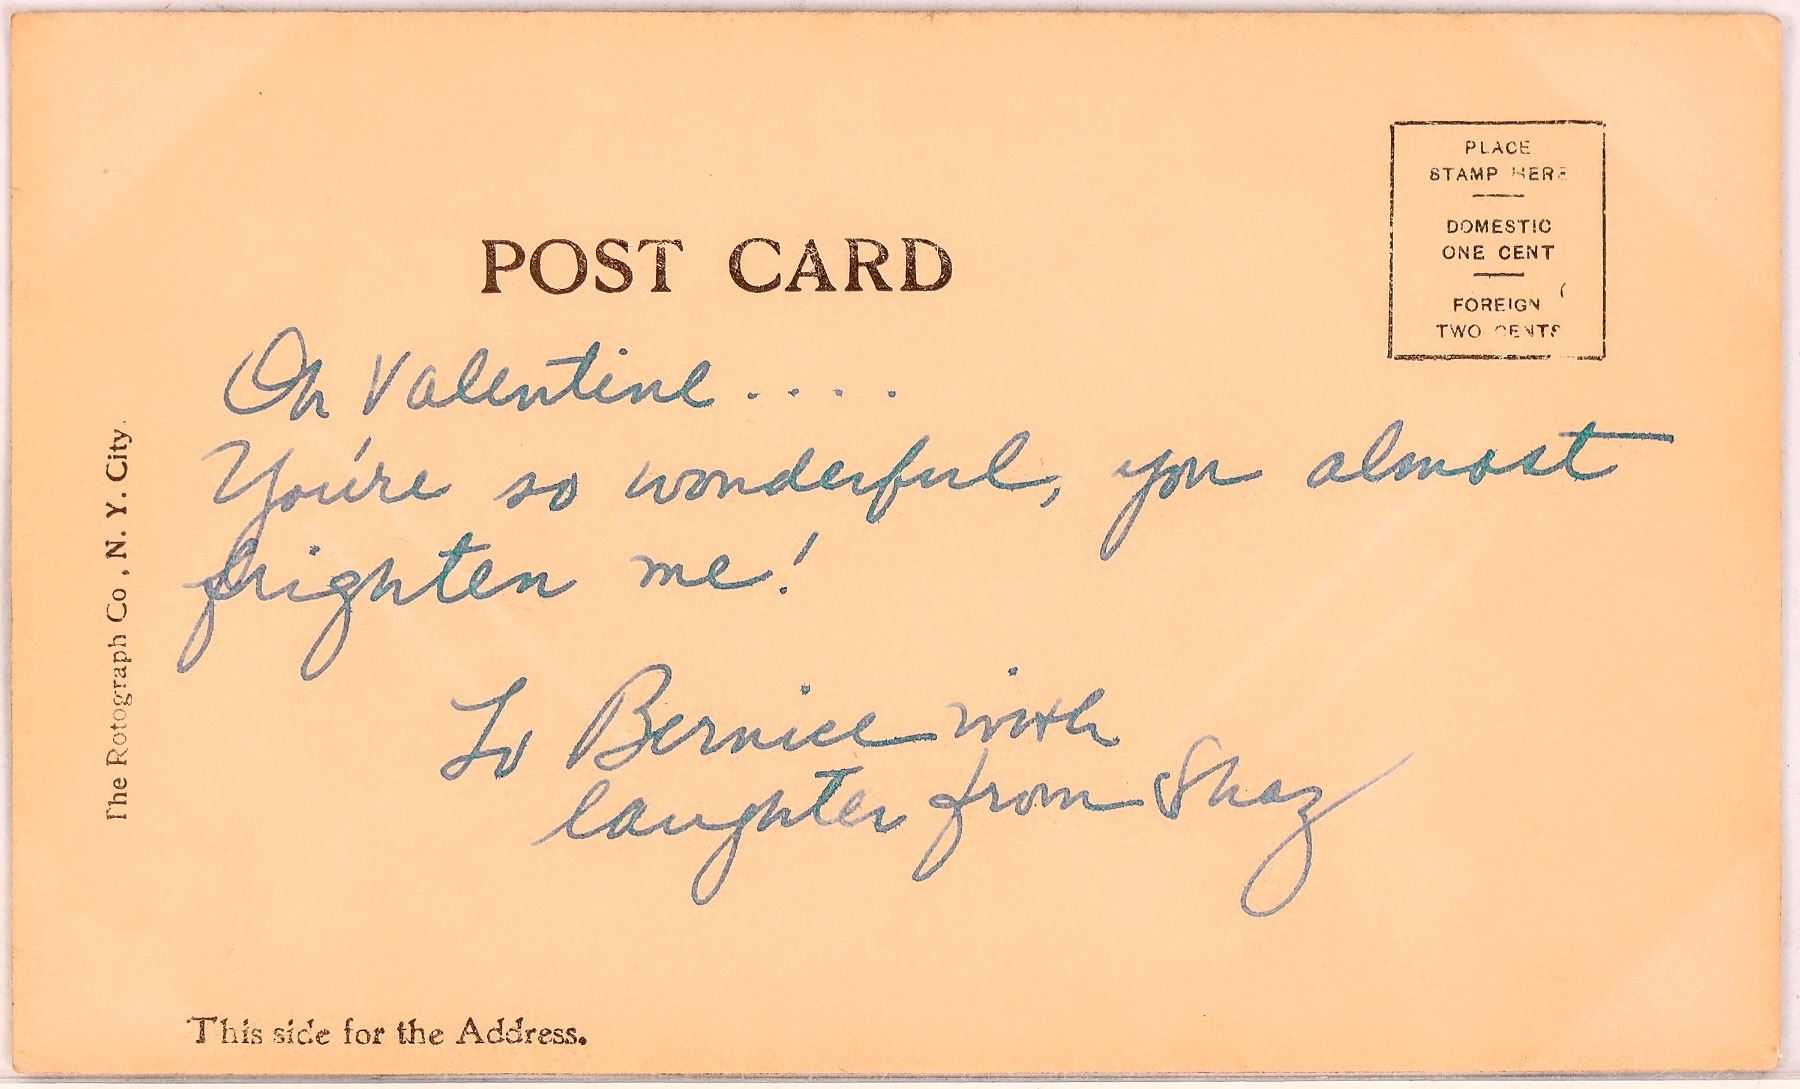 PLACE
STAMP HERE
DOMESTIC
ONE CENT
FOREIGN
TWO CENTS
POST CARD
Oh Valentine....
You're so wonderful, you almost
frighten me!
To Bernice with
laughter from Shaz
The Rotograph Co., N. Y. City.
This side for the Address.